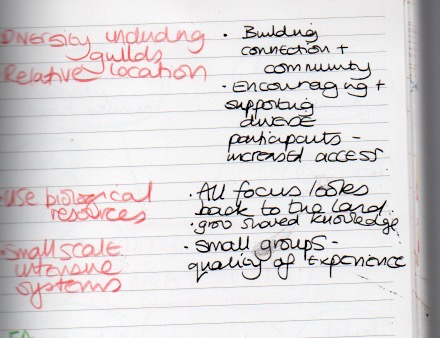 Diversity including
guilds
Relative location
· Building
connection +
community
· Encouraging +
supporting
diverse
participants -
increased access
·Use biological
resources
· All focus looks
back to the land.
· grow shared knowledge
·Small scale
intensive
systems
· Small groups -
quality of experience